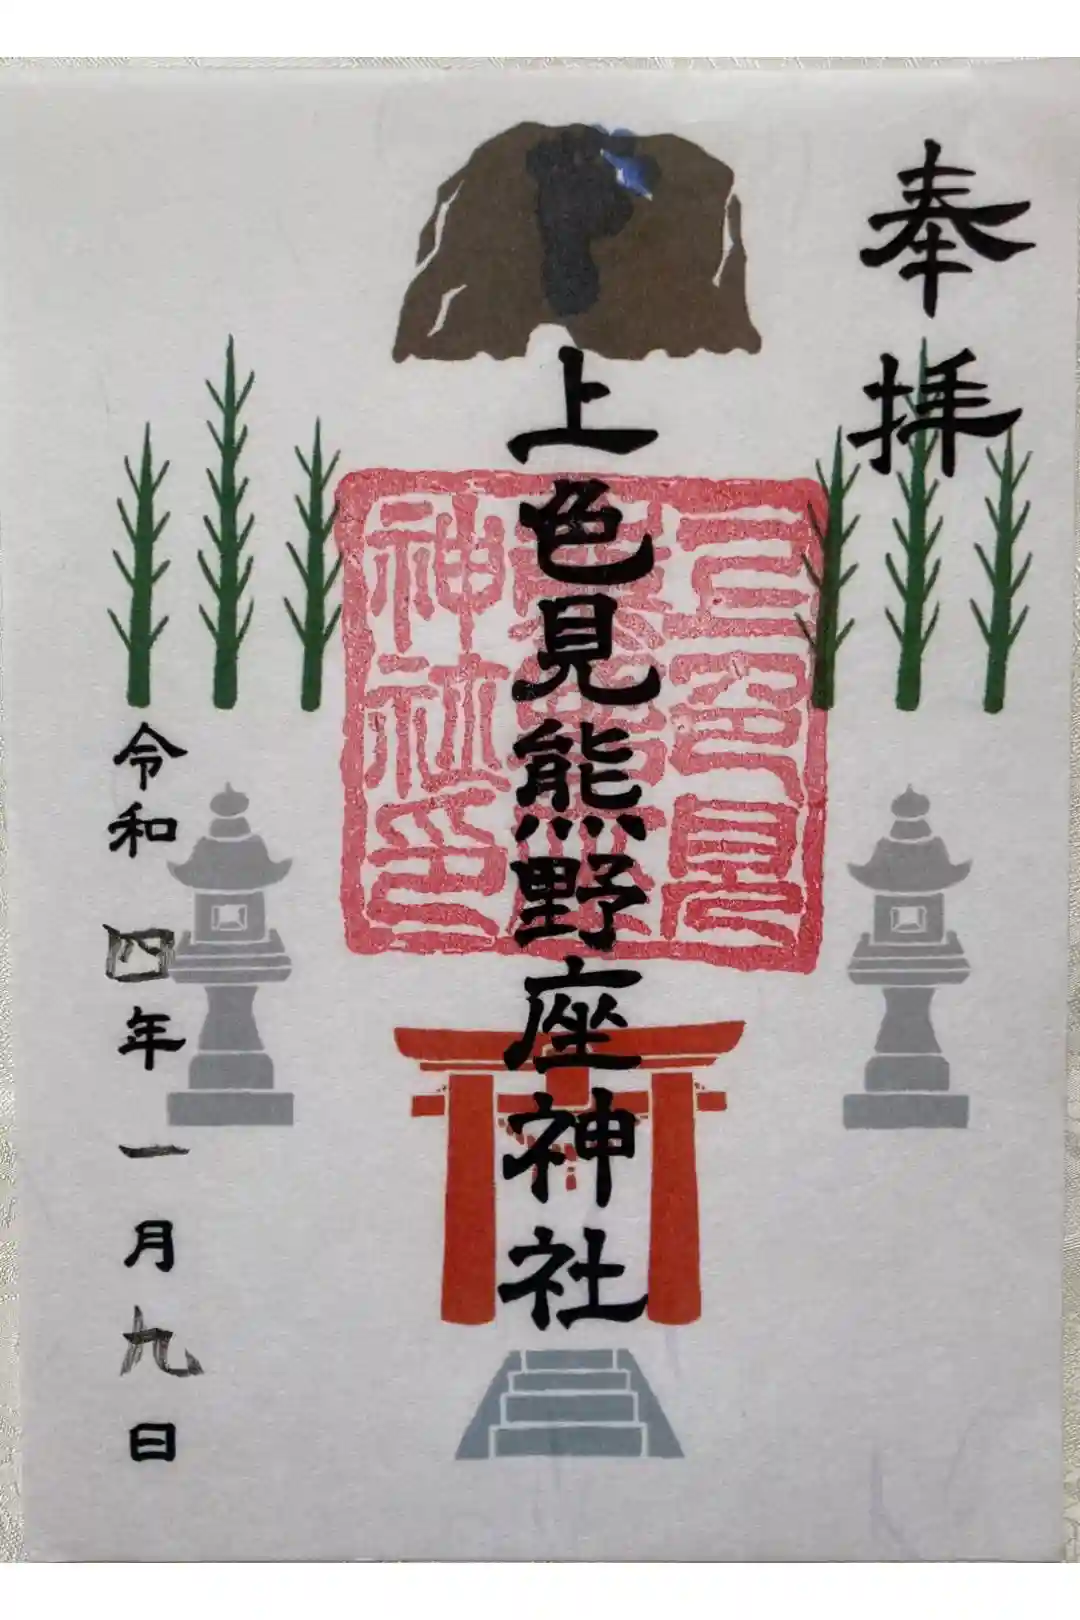 奉拝
上色見熊野座神社
上色見
熊野座
神社印
令和四年一月九日